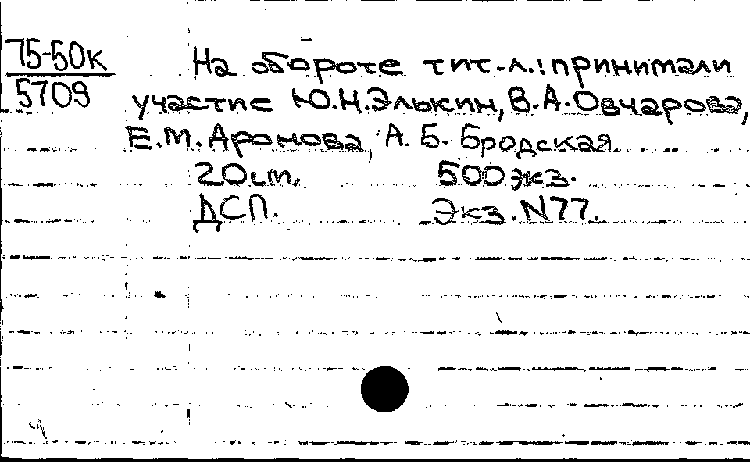 75-50к
5709
На обороте тит.л.: принимали
участие Ю.Н.Элькин, В.А.Овчарова,
Е.М.Аронова, А.Б.Бродская.
20 см. 500 экз.
ДСП. Экз.N77.